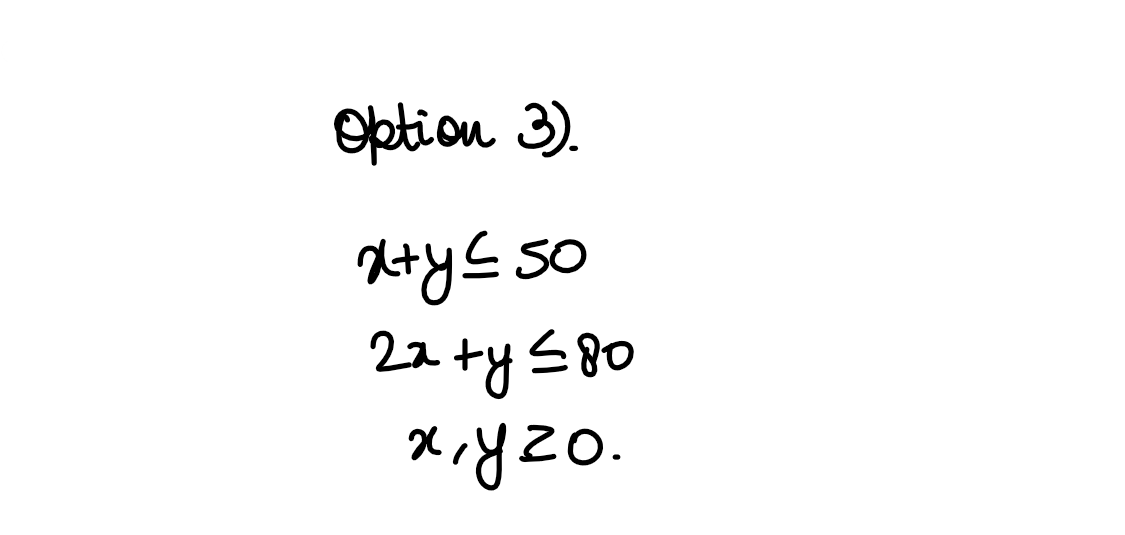 Option 3).
x+y ≤ 50
2x + y ≤ 80
x, y ≥ 0.